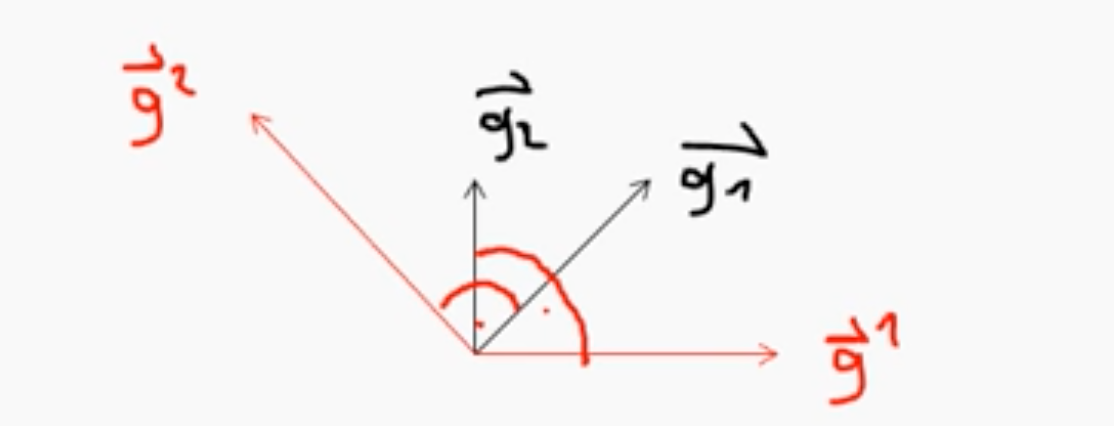 g⃗²
g⃗₂
g⃗₁
g⃗¹